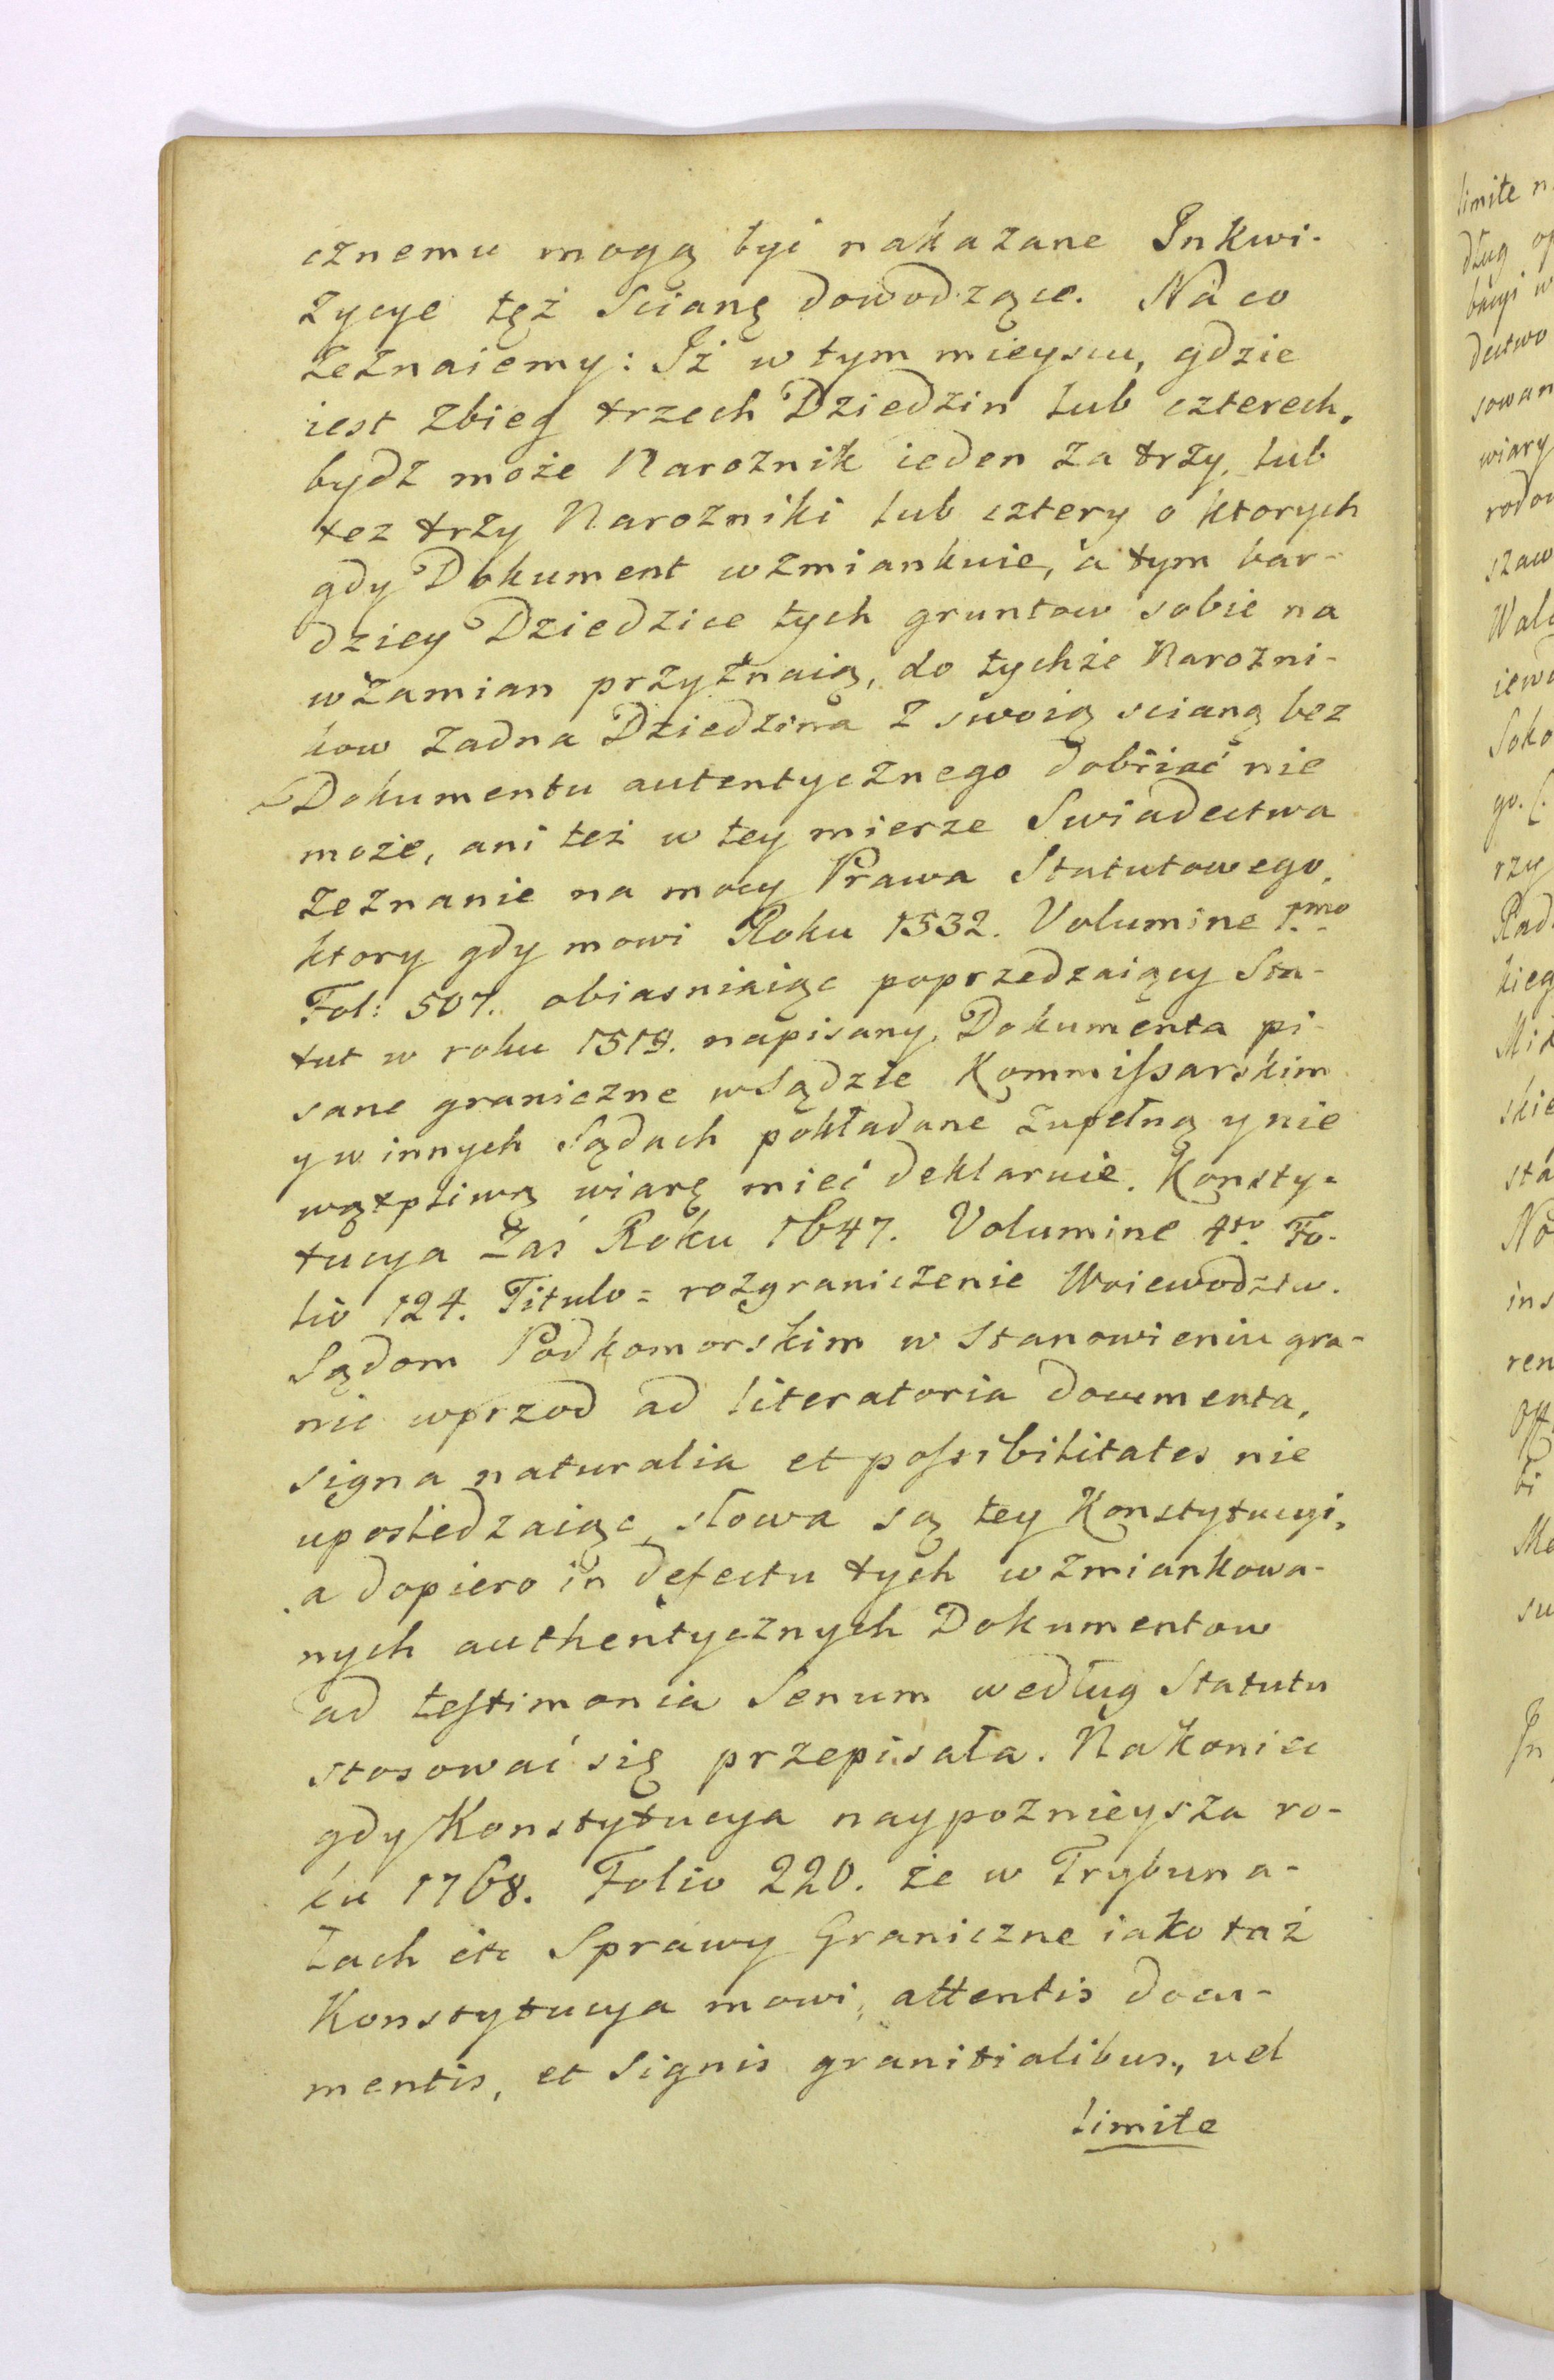 cznemu mogą być nakazane Inkwi-
zycye tęż Scianę dowodzące. Na co
zeznaiemy: Iż w tym mieyscu, gdzie
iest zbieg trzech Dziedzin lub czterech,
bydz może Naroznik ieden za trzy, lub
tez trzy Narozniki lub cztery o ktorych
gdy Dokument wzmiankuie, a tym bar-
dziey Dziedzice tych gruntow sobie na
wzamian przyznaią, do tychże Narozni-
kow zadna Dziedzina z swoią scianą bez
Dokumentu autentycznego dobrać nie
może, ani też w tey mierze Swiadectwa
zeznanie na mocy Prawa Statutowego,
ktory gdy mowi Roku 1532. Volumine 1.mo
Fol: 507. obiasniaiąc poprzedzaiący Sta-
tut w roku 1519. napisany, Dokumenta pi-
sane graniczne w Sądzie Kommissarskim
y w innych Sądach pokładane zupełną y nie
wątpliwą wiarę mieć deklaruie. Konsty-
tucya zaś Roku 1647. Volumine 4to. Fo-
lio 124. Titulo = rozgraniczenie Woiewodztw.
Sądom Podkomorskim w Stanowieniu gra-
nic wprzod ad literatoria documenta,
signa naturalia et possibilitates nie
uposledzaiąc, słowa są tey Konstytucyi,
a dopiero in defectu tych wzmiankowa-
nych authentycznych Dokumentow
ad testimonia Senum według Statutu
stosować się przepisała. Nakoniec
gdy Konstytucya naypoznieysza ro-
ku 1768. Folio 220. że w Trybuna-
łach etc Sprawy Graniczne iako taż
Konstytucya mowi, attentis docu-
mentis, et Signis granitialibus, vel
limite
limite n
dług
dectwo
sowan
wiary
szaw
rzy
kieg
skie
sta
No
ins
ren
su
In